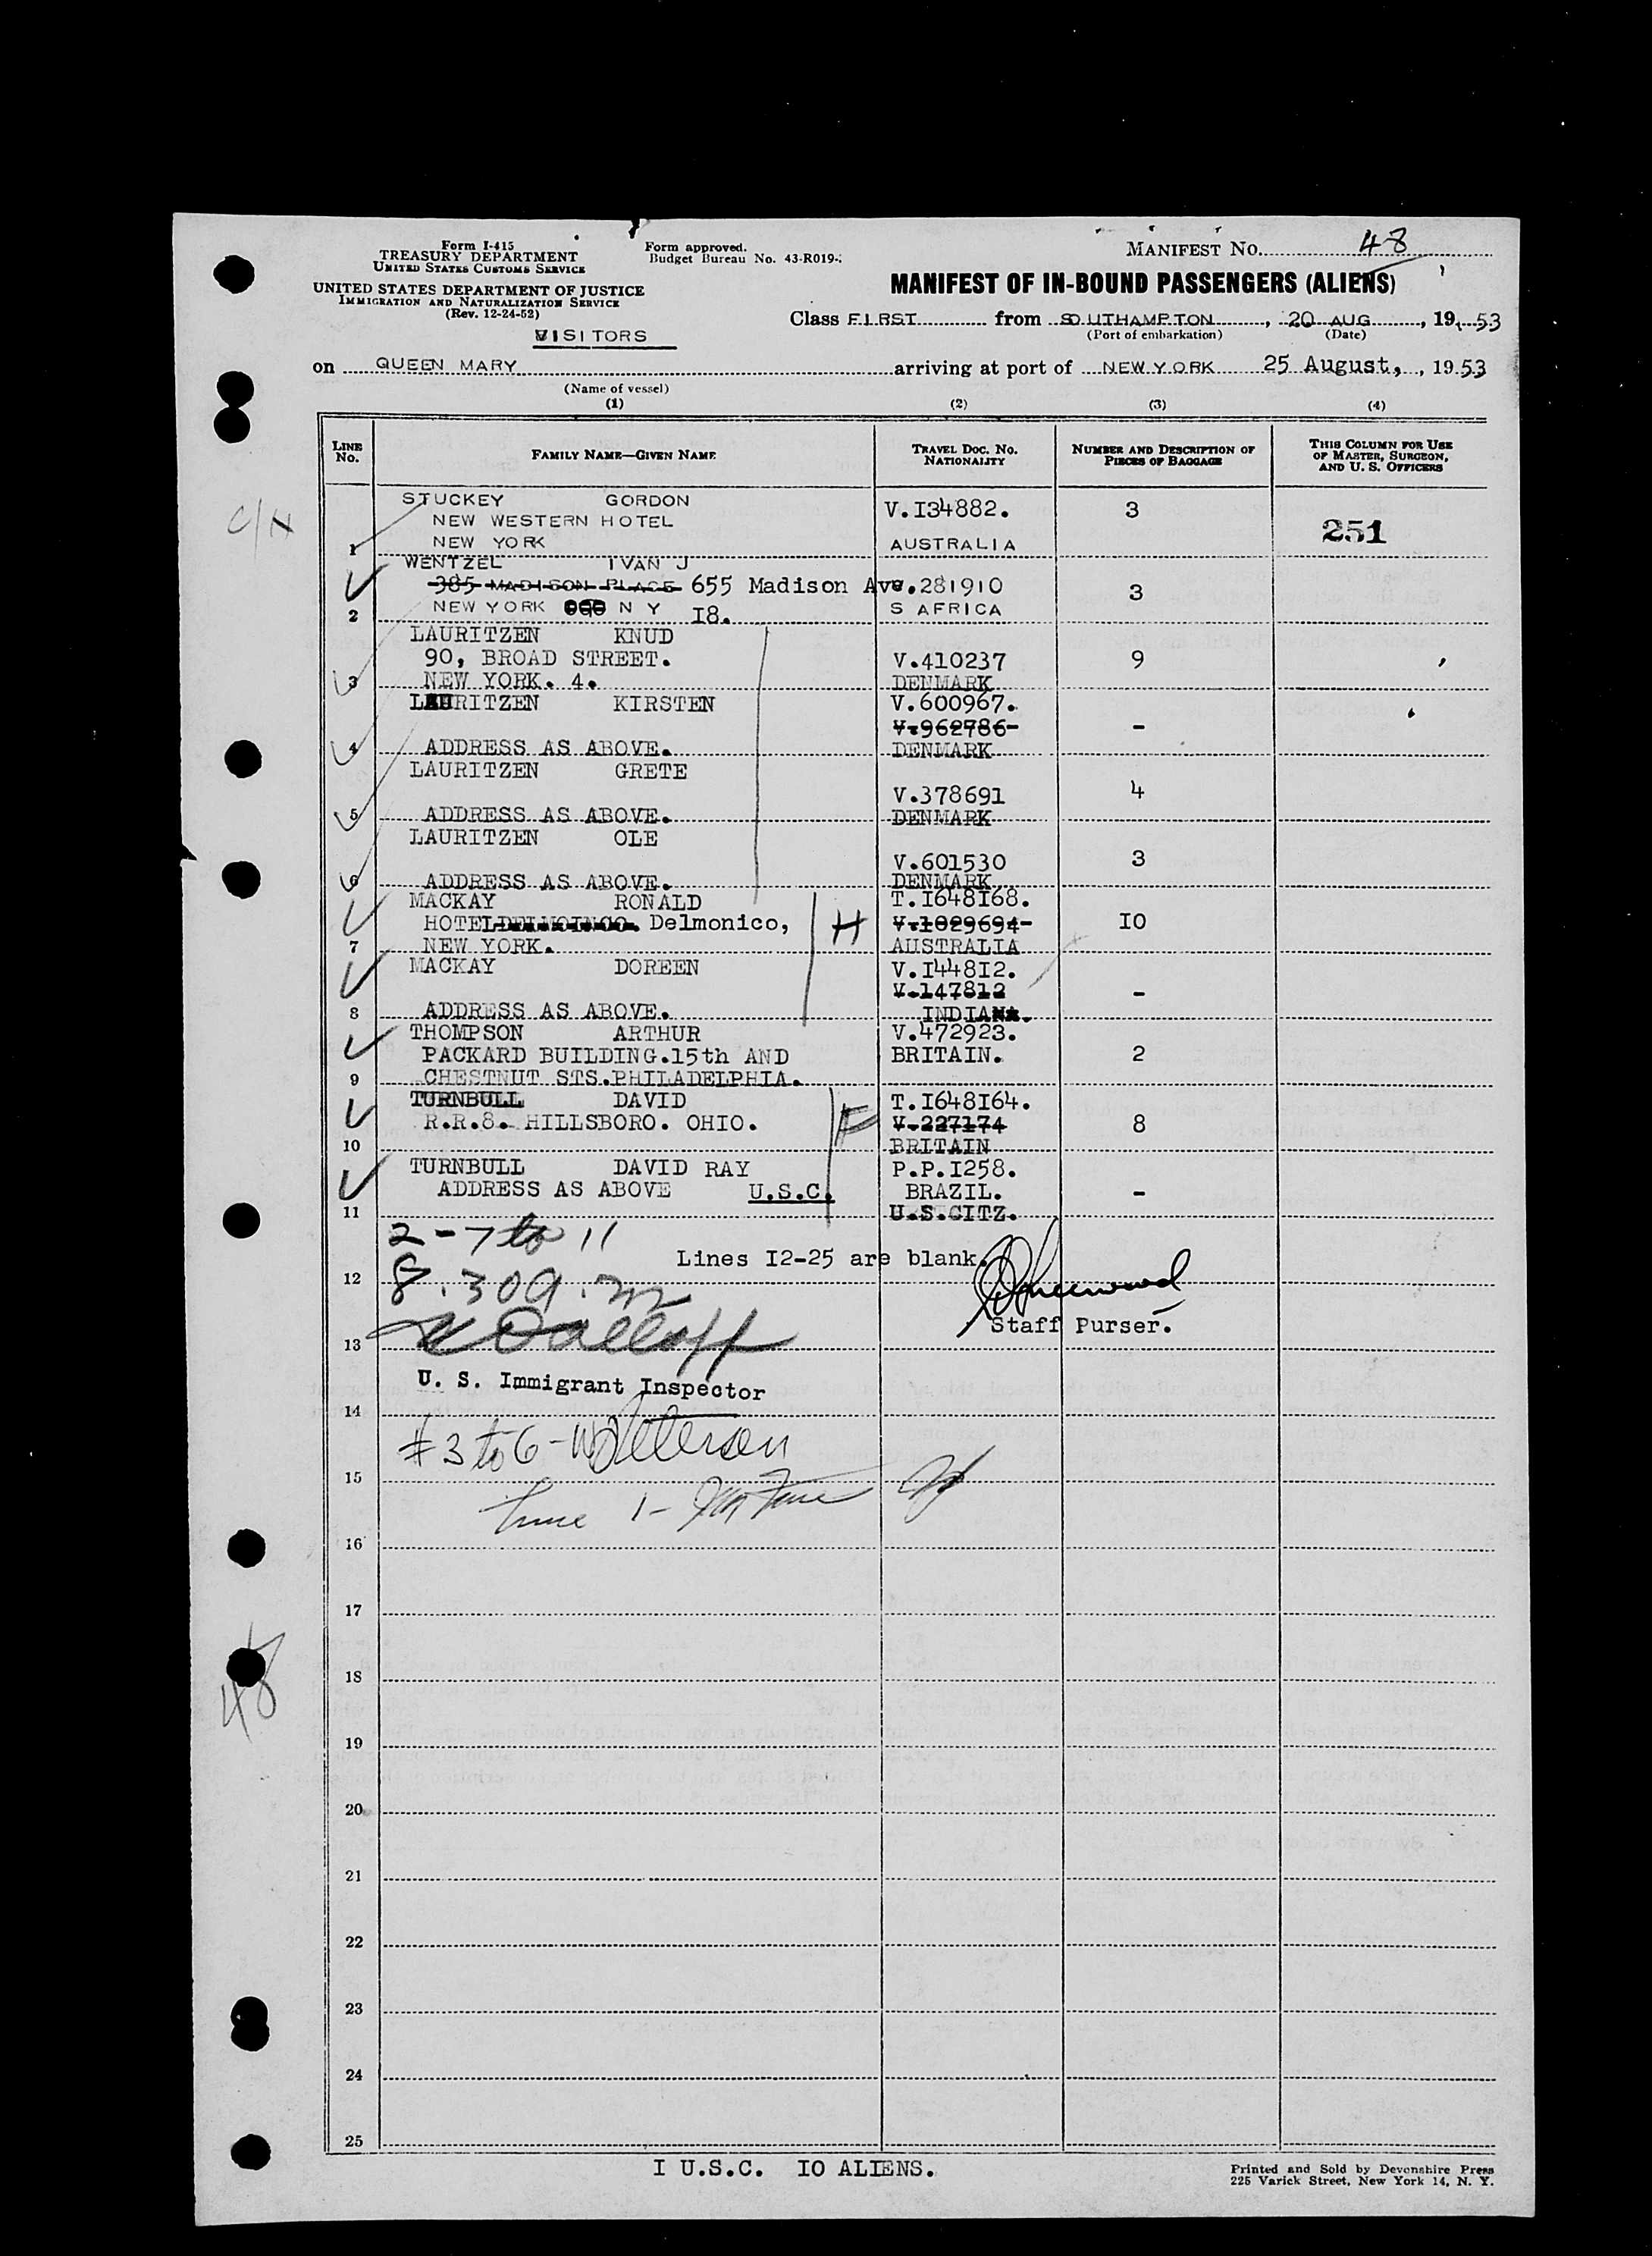 Form I-415
TREASURY DEPARTMENT
UNITED STATES CUSTOMS SERVICE
UNITED STATES DEPARTMENT OF JUSTICE
IMMIGRATION AND NATURALIZATION SERVICE
(Rev. 12-24-52)
VISITORS
Form approved.
Budget Bureau No. 43-R019-
MANIFEST No. 48
MANIFEST OF IN-BOUND PASSENGERS (ALIENS)
Class FIRST from SOUTHAMPTON, 20 AUG, 1953
(Port of embarkation) (Date)
on QUEEN MARY arriving at port of NEW YORK 25 August, , 1953
(Name of vessel)
(1) (2) (3) (4)
LINE No. FAMILY NAME—GIVEN NAME TRAVEL DOC. NO. NATIONALITY NUMBER AND DESCRIPTION OF PIECES OF BAGGAGE THIS COLUMN FOR USE OF MASTER, SURGEON, AND U. S. OFFICERS
C/H
STUCKEY GORDON V.I34882. 3
NEW WESTERN HOTEL 251
1 NEW YORK AUSTRALIA
WENTZEL IVAN J
385 MADISON PLACE 655 Madison Ave. 281910 3
2 NEW YORK N Y I8. S AFRICA
LAURITZEN KNUD
90, BROAD STREET. V.410237 9
3 NEW YORK. 4. DENMARK
LAURITZEN KIRSTEN V.600967.
V.962786 -
4 ADDRESS AS ABOVE. DENMARK
LAURITZEN GRETE
V.378691 4
5 ADDRESS AS ABOVE. DENMARK
LAURITZEN OLE
V.601530 3
6 ADDRESS AS ABOVE. DENMARK
MACKAY RONALD T.I648I68.
HOTEL Delmonico, H V.1029694 IO
7 NEW YORK. AUSTRALIA
MACKAY DOREEN V.I448I2.
V.147812 -
8 ADDRESS AS ABOVE. INDIA
THOMPSON ARTHUR V.472923.
PACKARD BUILDING.15th AND BRITAIN. 2
9 CHESTNUT STS.PHILADELPHIA.
TURNBULL DAVID T.I648I64.
R.R.8. HILLSBORO. OHIO. F V.227174 8
10 BRITAIN
TURNBULL DAVID RAY P.P.I258.
ADDRESS AS ABOVE U.S.C. BRAZIL. -
11 U.S.CITZ.
2-7 to 11
Lines I2-25 are blank.
12 8.30 a.m
Staff Purser.
13
U. S. Immigrant Inspector
14
#3 to 6 -
15
1 -
16
17
48
18
19
20
21
22
23
24
25
I U.S.C. IO ALIENS.
Printed and Sold by Devonshire Press
225 Varick Street, New York 14, N. Y.